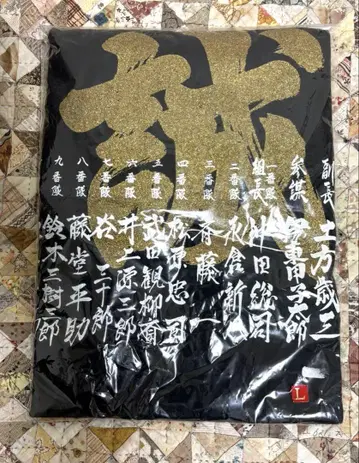 誠
副長 土方歳三
参謀 伊東甲子太郎
一番隊組長 沖田総司
二番隊 永倉新八
三番隊 斎藤一
四番隊 松原忠司
五番隊 武田観柳斎
六番隊 井上源三郎
七番隊 谷三十郎
八番隊 藤堂平助
九番隊 鈴木三樹三郎
L